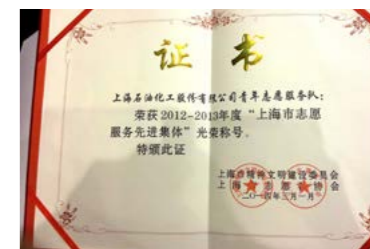 证书
上海石油化工股份有限公司青年志愿服务队：
荣获2012-2013年度“上海市志愿
服务先进集体”光荣称号。
特颁此证
上海市精神文明建设委员会
上海志愿者协会
二〇一四年三月一日